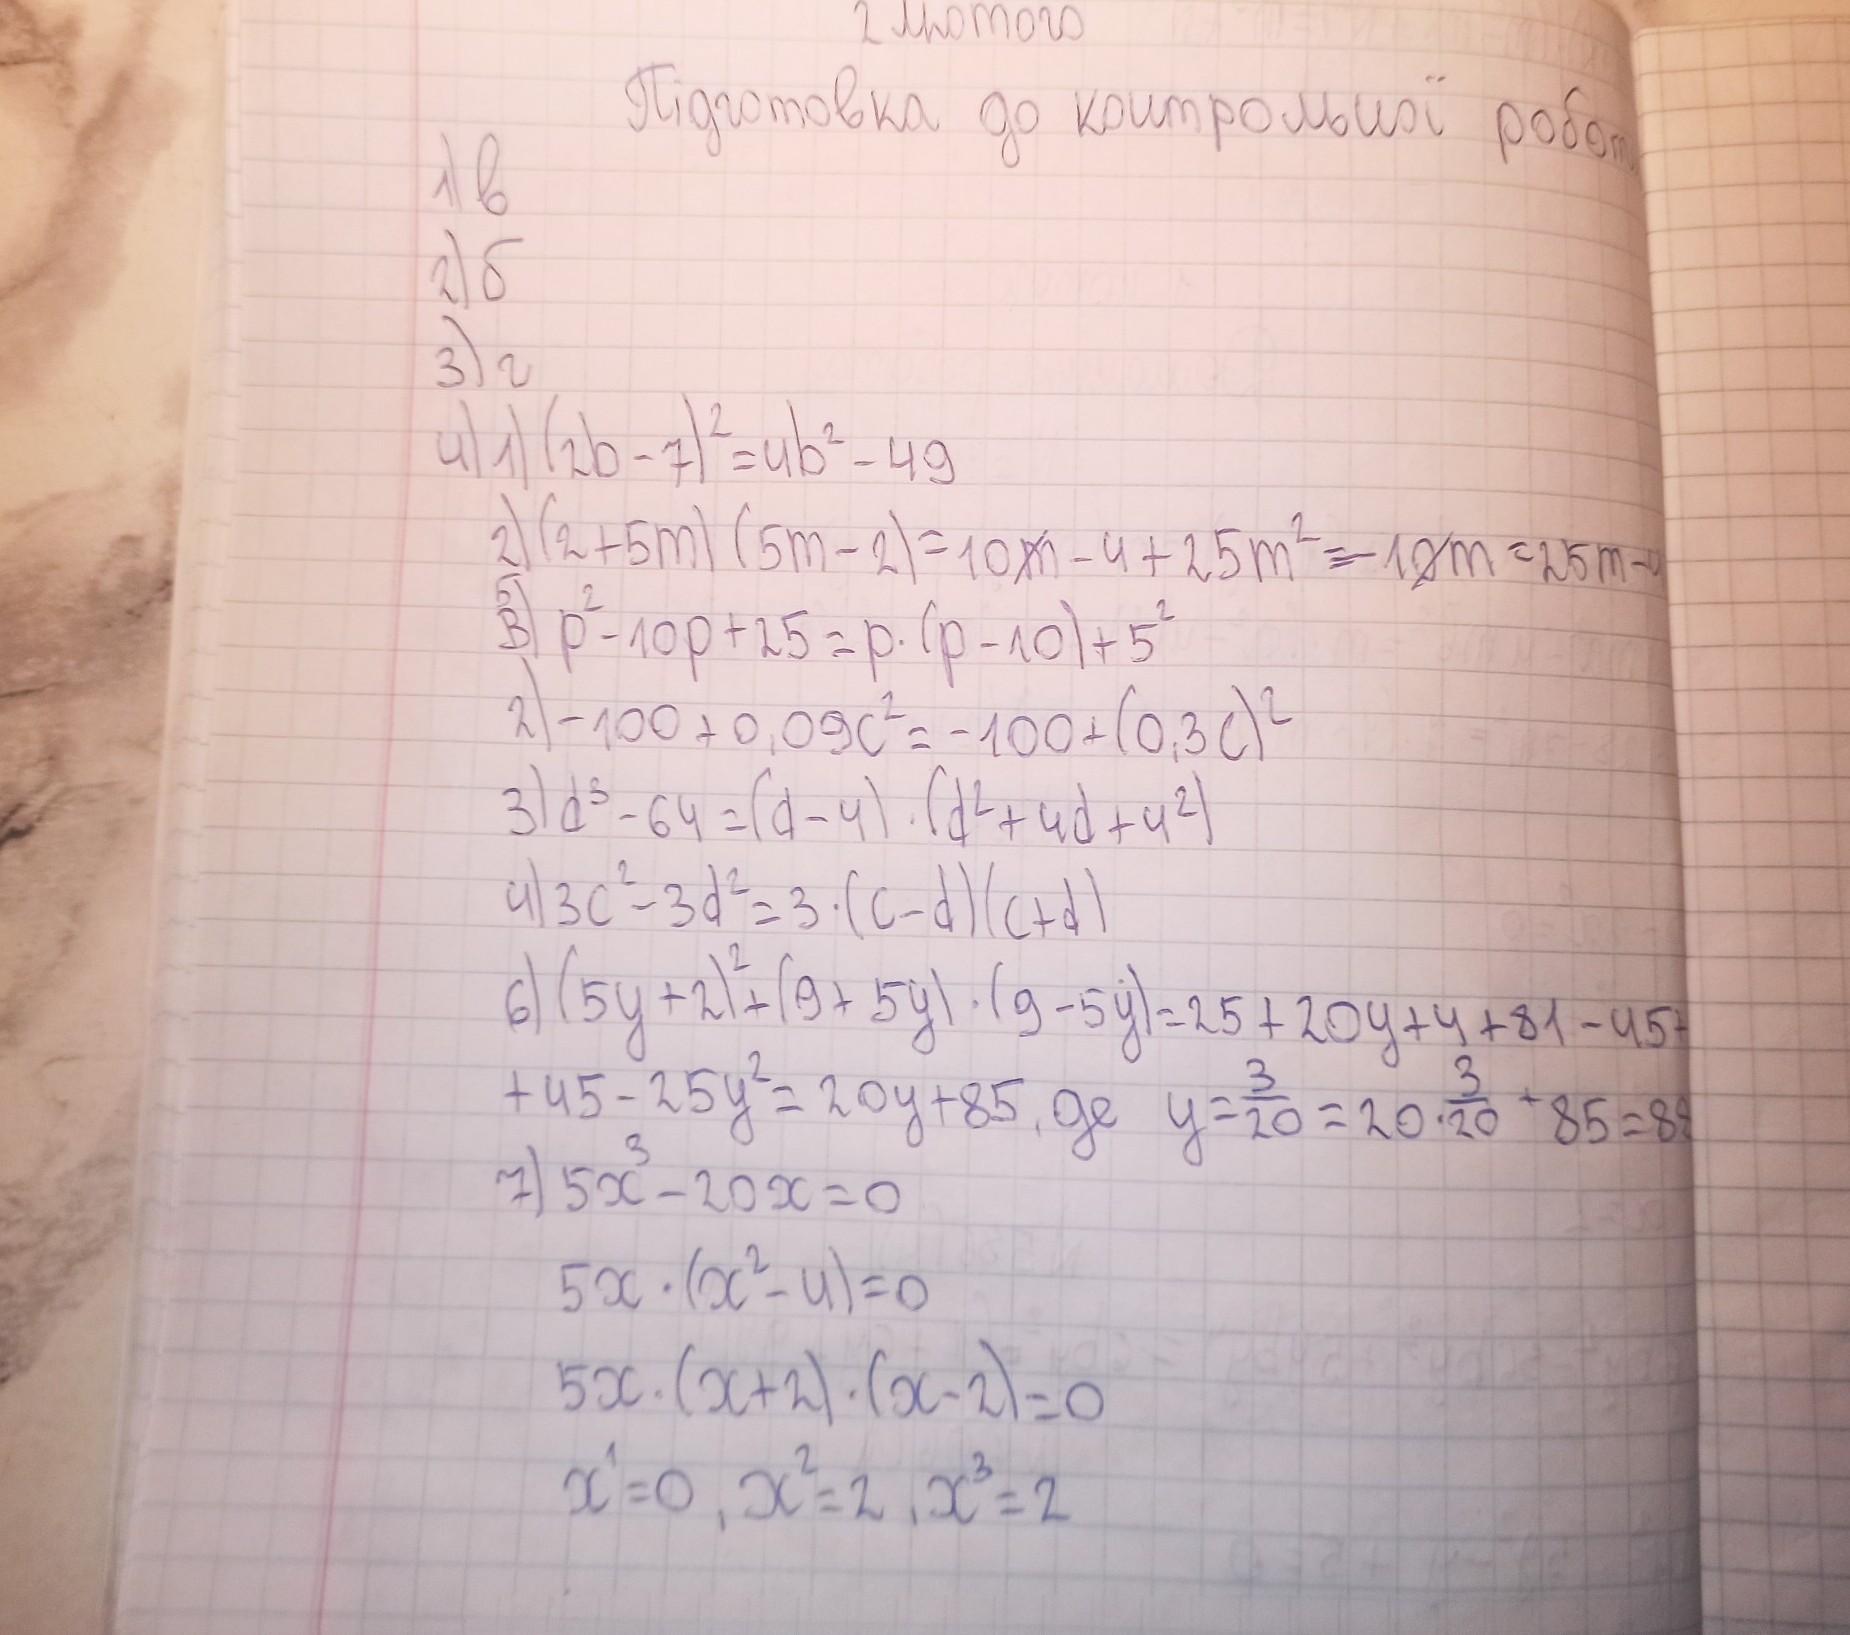 2 лютого
Підготовка до контрольної робот
1) в
2) б
3) г
4) 1) (2b-7)²=4b²-49
2) (2+5m) (5m-2)=10m-4+25m²=-10m=25m-
5) p²-10p+25=p·(p-10)+5²
2) -100+0,09c²=-100+(0,3c)²
3) d³-64=(d-4)·(d²+4d+4²)
4) 3c²-3d²=3·(c-d)(c+d)
6) (5y+2)²+(9+5y)·(9-5y)=25+20y+4+81-45+
+45-25y²=20y+85, де y=3/20=20·3/20+85=88
7) 5x³-20x=0
5x·(x²-4)=0
5x·(x+2)·(x-2)=0
x¹=0, x²=2, x³=2